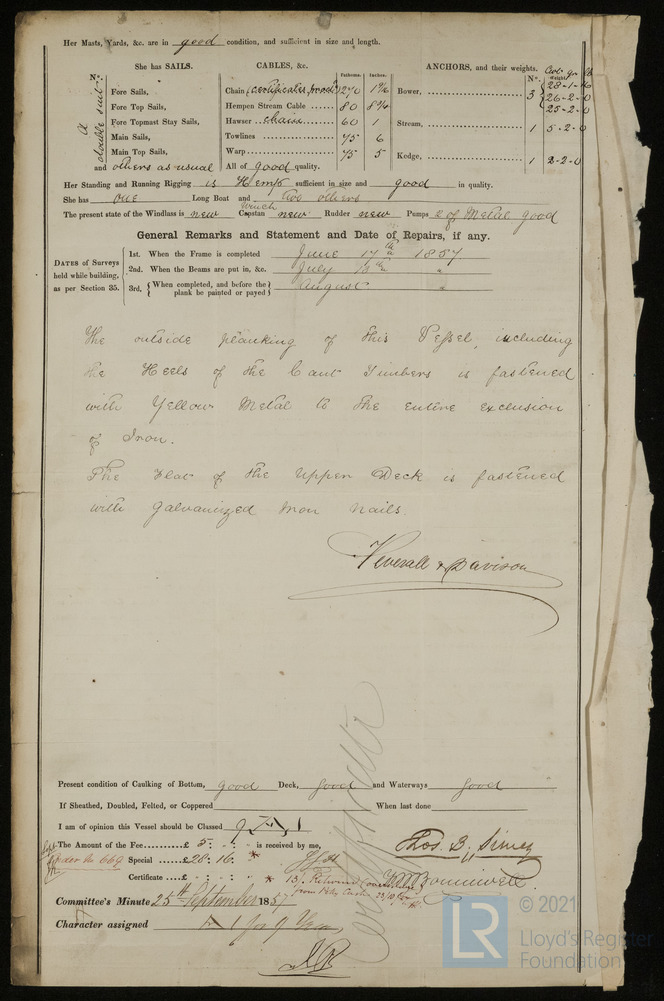 Her Masts, Yards, &c. are in good condition, and sufficient in size and length.
She has SAILS.
CABLES, &c.
ANCHORS, and their weights.
N°.
Fathoms.
Inches.
N°.
Weight
A double suit
Fore Sails,
Fore Top Sails,
Fore Topmast Stay Sails,
Main Sails,
Main Top Sails,
and others as usual
Chain (certificates prod) 270
Hempen Stream Cable 80 8¾
Hawser chain 60 1
Towlines 75 6
Warp 75 5
All of good quality.
Bower, 3 28-1-
26-2-0
25-2-0
Stream, 1 5-2-0
Kedge, 1 2-2-0
Her Standing and Running Rigging is Hemp sufficient in size and good in quality.
She has one Long Boat and two others
The present state of the Windlass is new Winch Capstan new Rudder new Pumps 2 of Metal good
General Remarks and Statement and Date of Repairs, if any.
DATES of Surveys held while building, as per Section 35.
1st. When the Frame is completed June 17th 1857
2nd. When the Beams are put in, &c. July "
3rd. { When completed, and before the plank be painted or payed } August "
The outside planking of this Vessel, including
the Heels of the Cant Timbers is fastened
with Yellow Metal to the entire exclusion
of Iron.
The Flat of the Upper Deck is fastened
with galvanized Iron nails.
Peverall & Davison
Present condition of Caulking of Bottom, good Deck, good and Waterways good
If Sheathed, Doubled, Felted, or Coppered When last done
I am of opinion this Vessel should be Classed 9
The Amount of the Fee £ 5 : - : - is received by me,
Special £28 : 16 :
Certificate £ - : - : -
Thos. B. Simey
Bonniwell
Committee's Minute 25th September 1857
Character assigned A 1 for 9 Years
© 2021
LR
Lloyd's Register
Foundation